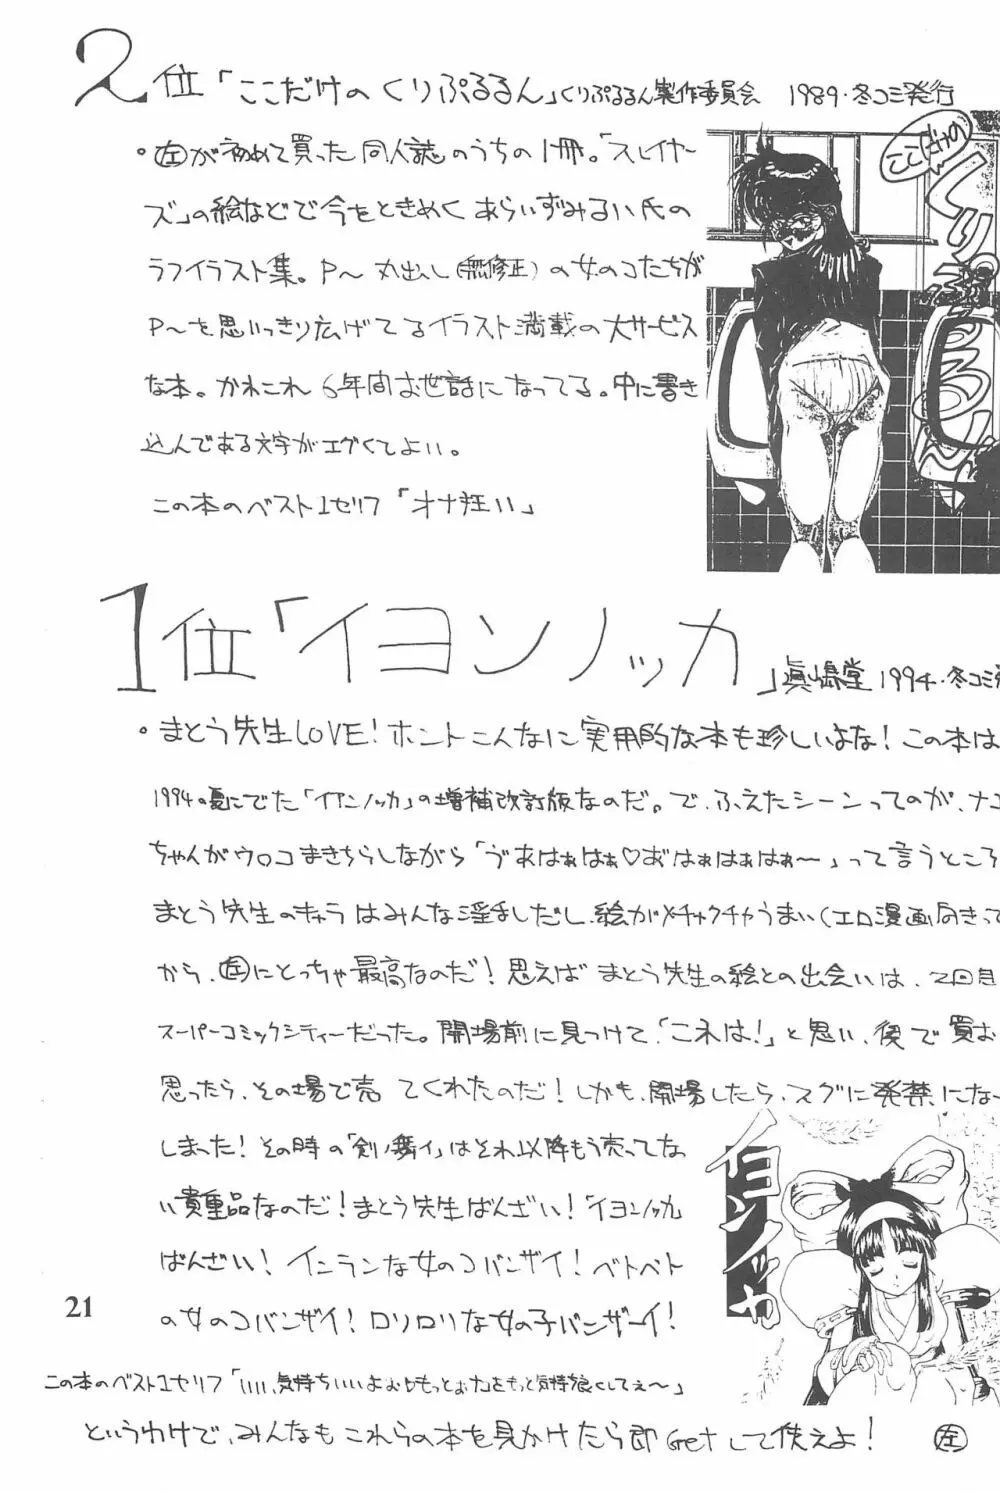 2位「ここだけのくりぷるるん」くりぷるるん製作委員会 1989・冬コミ発行
・左が初めて買った同人誌のうちの1冊。「スレイヤー
ズ」の絵などで今をときめくあらいずみるい氏の
ラフイラスト集。P〜丸出し(無修正)の女のコたちが
P〜を思いっきり広げてるイラスト満載の大サービス
な本。かれこれ6年間お世話になってる。中に書き
込んである文字がエグくてよい。
この本のベスト1セリフ「オナ狂い」
ここだけの
くりぷるるん
1位「イヨンノッカ」眞嶋堂 1994・冬コミ発
・まとう先生LOVE!ホントこんなに実用的な本も珍しいよな!この本は
1994。夏にでた「イヨンノッカ」の増補改訂版なのだ。で、ふえたシーンってのが、ナコ
ちゃんがウロコまきちらしながら「うあはぁはぁ♡おはぁはぁはぁ〜」って言うところ
まとう先生のキャラはみんな淫乱だし、絵がメチャクチャうまい(エロ漫画向きって
から、左にとっちゃ最高なのだ!思えばまとう先生の絵との出会いは、2回目
スーパーコミックシティーだった。開場前に見つけて、「これは!」と思い、後で買お
思ったら、その場で売ってくれたのだ!しかも、開場したら、スグに発禁になっ
しまった!その時の「剣ノ舞イ」はそれ以降もう売ってな
い貴重品なのだ!まとう先生ばんざい!「イヨンノッカ」
ばんざい!インランな女のコバンザイ!ベトベト
の女のコバンザイ!ロリロリな女の子バンザーイ!
イヨンノッカ
この本のベスト1セリフ「いいい、気持ちいいよぉ
というわけで、みんなもこれらの本を見かけたら即Getして使えよ! 左
21